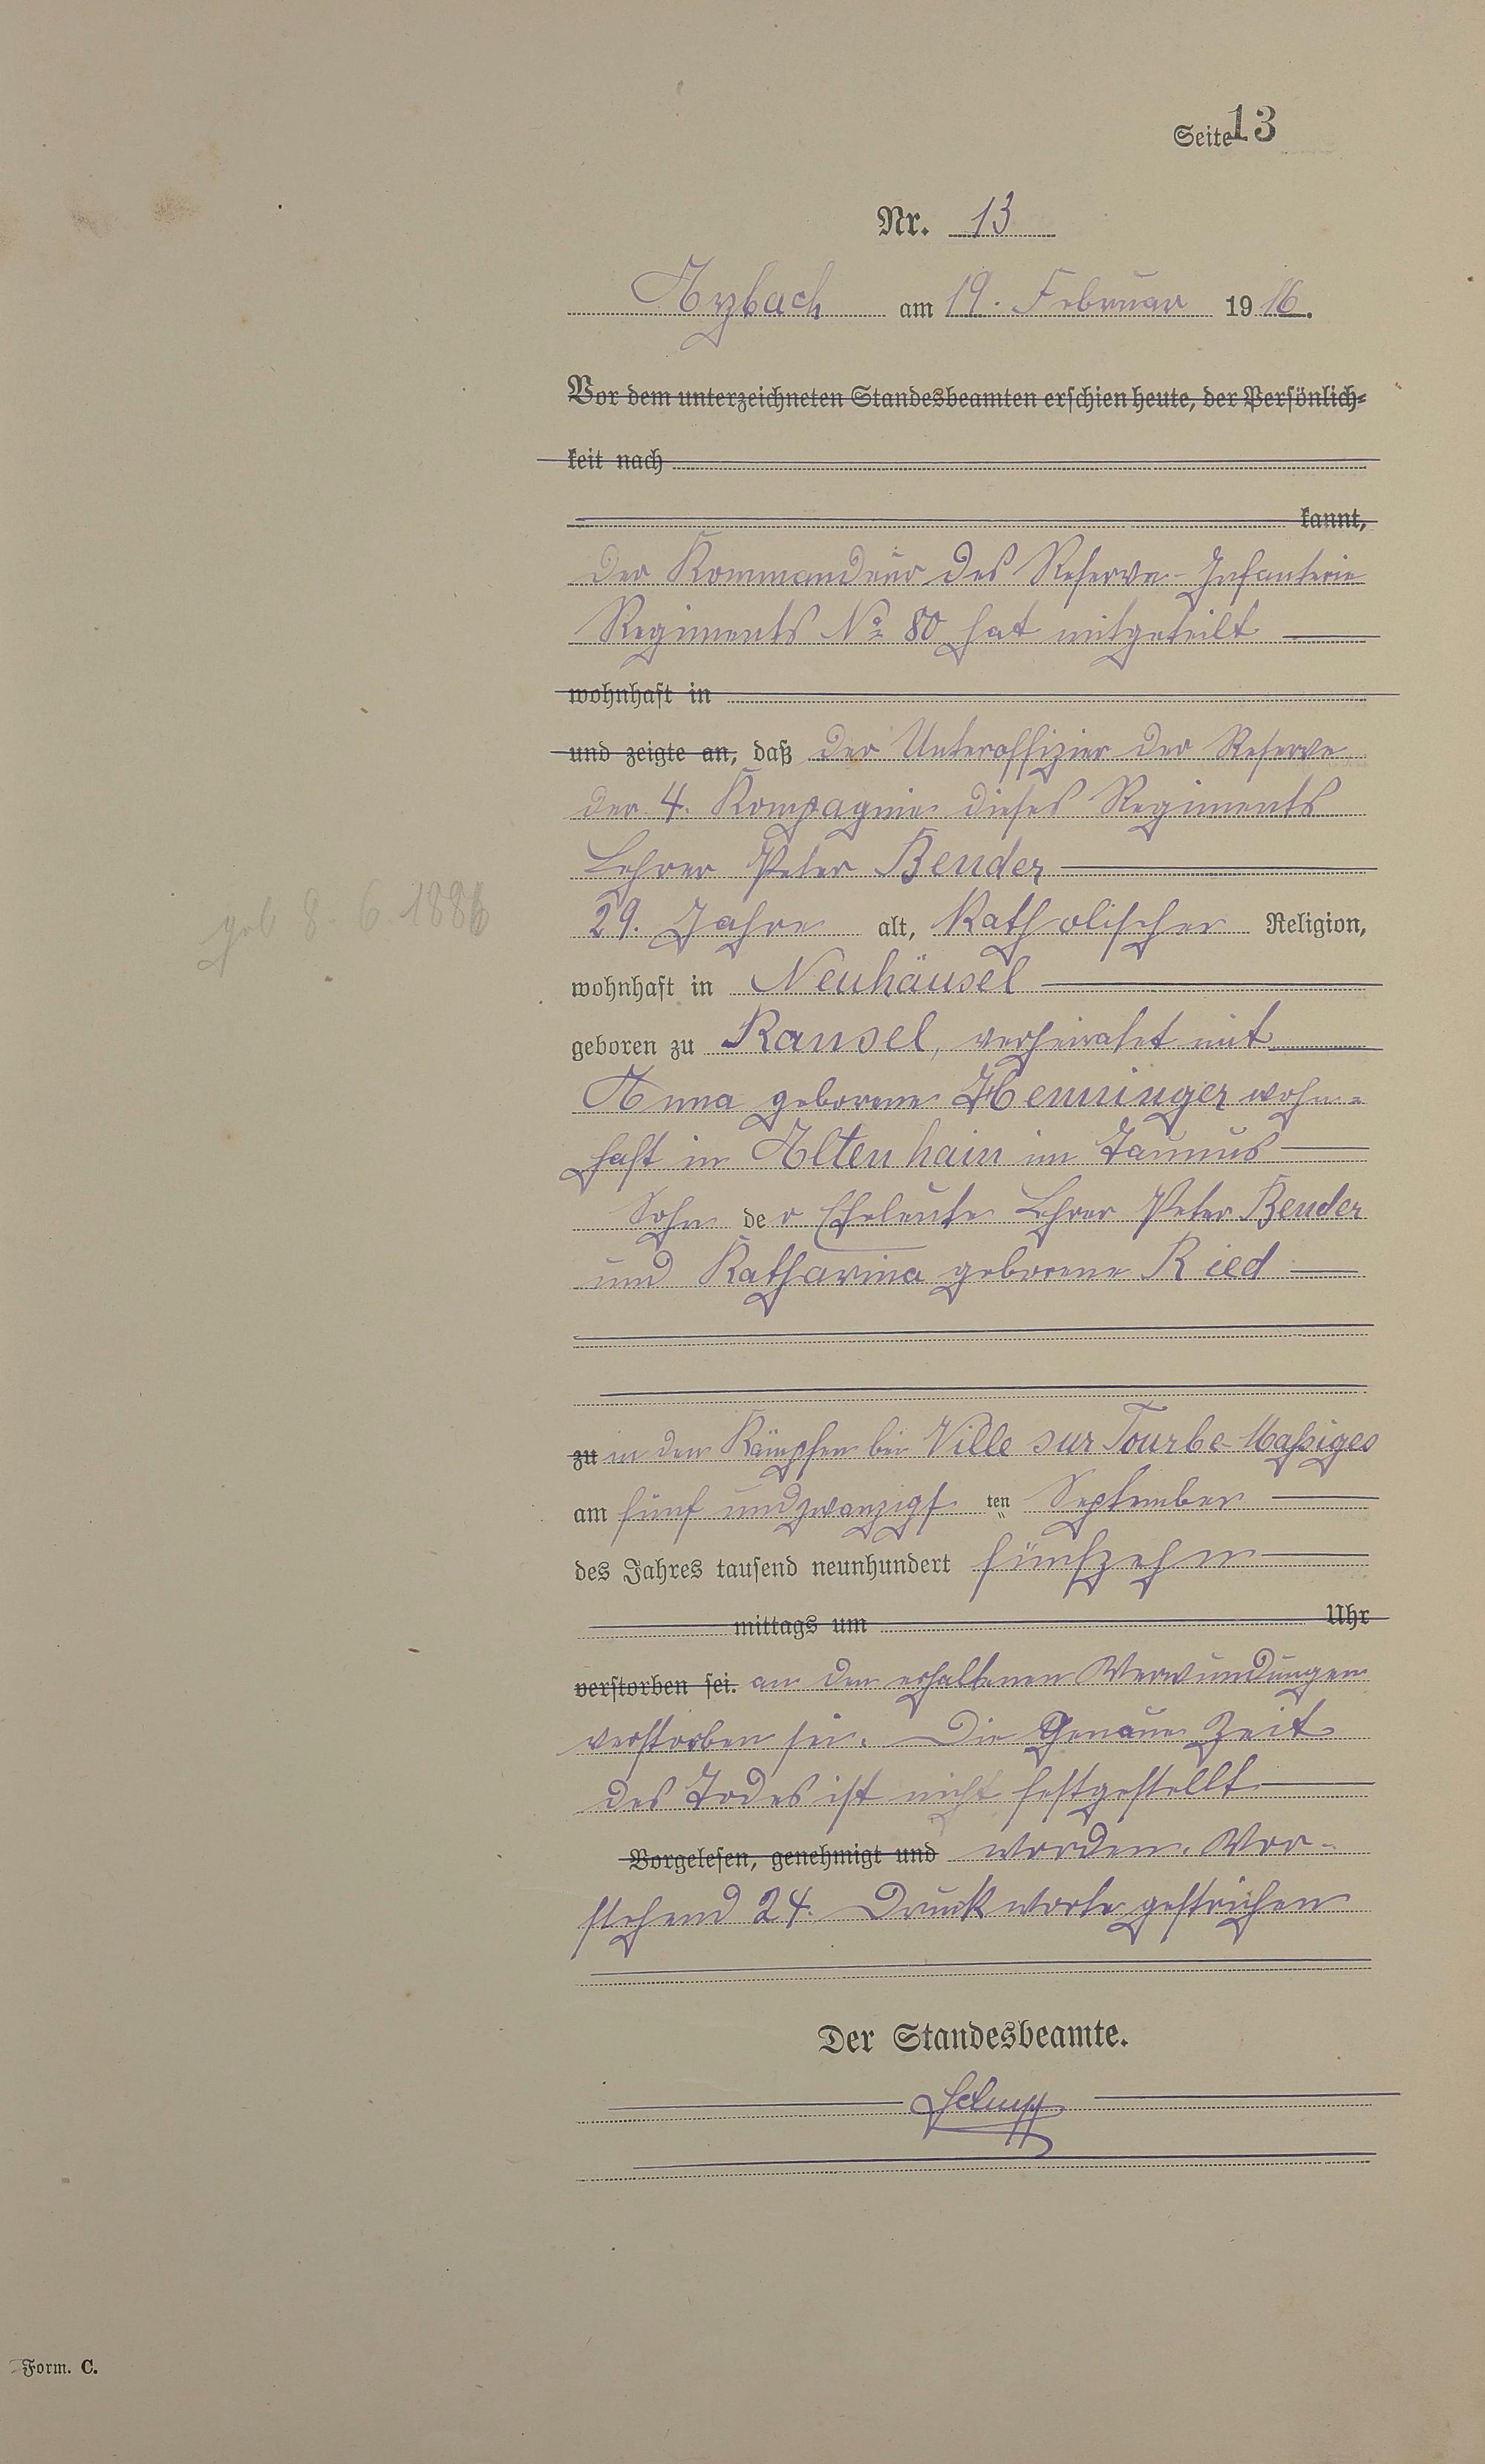 Seite 13
Nr. 13
Arzbach am 19. Februar 1916.
Vor dem unterzeichneten Standesbeamten erschien heute, der Persönlich=
keit nach
kannt,
der Kommandeur des Reserve-Infanterie
Regiments No 80 hat mitgeteilt
wohnhaft in
und zeigte an, daß der Unteroffizier der Reserve
der 4. Kompagnie dieses Regiments
Lehrer Peter Bender
geb 8. 6. 1886
29. Jahre alt, Katholischer Religion,
wohnhaft in Neuhäusel
geboren zu Ransel, verheiratet mit
Anna geborene Henninger wohn=
haft in Altenhain im Taunus
Sohn der Eheleute Lehrer Peter Bender
und Katharina geborene Ried
zu in den Kämpfen bei Ville sur Tourbe-Maßiges
am fünf und zwanzigsten September
des Jahres tausend neunhundert fünfzehn
mittags um Uhr
verstorben sei. an den erhaltenen Verwundungen
verstorben sei. Die Genaue Zeit
des Todes ist nicht festgestellt
Vorgelesen, genehmigt und worden. Vor-
stehend 24. Druckworte gestrichen
Der Standesbeamte.
Form. C.